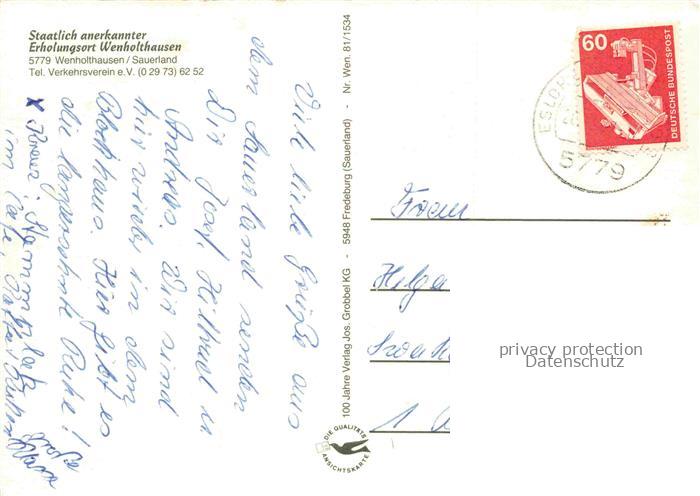 Staatlich anerkannter
Erholungsort Wenholthausen
5779 Wenholthausen / Sauerland
Tel. Verkehrsverein e.V. (0 29 73) 62 52
Viele liebe Grüße aus
dem Sauerland senden
Dir Josef, Hiltrud u
Andreas. Wir sind
hier wieder in dem
Blockhaus. Hier gibt es
die langersehnte Ruhe!
im Cafe
100 Jahre Verlag Jos. Grobbel KG - 5948 Fredeburg (Sauerland) - Nr. Wen. 81/1534
DIE QUALITÄTS
ANSICHTSKARTE
60
DEUTSCHE BUNDESPOST
5779
Frau
Helga
privacy protection
Datenschutz
1